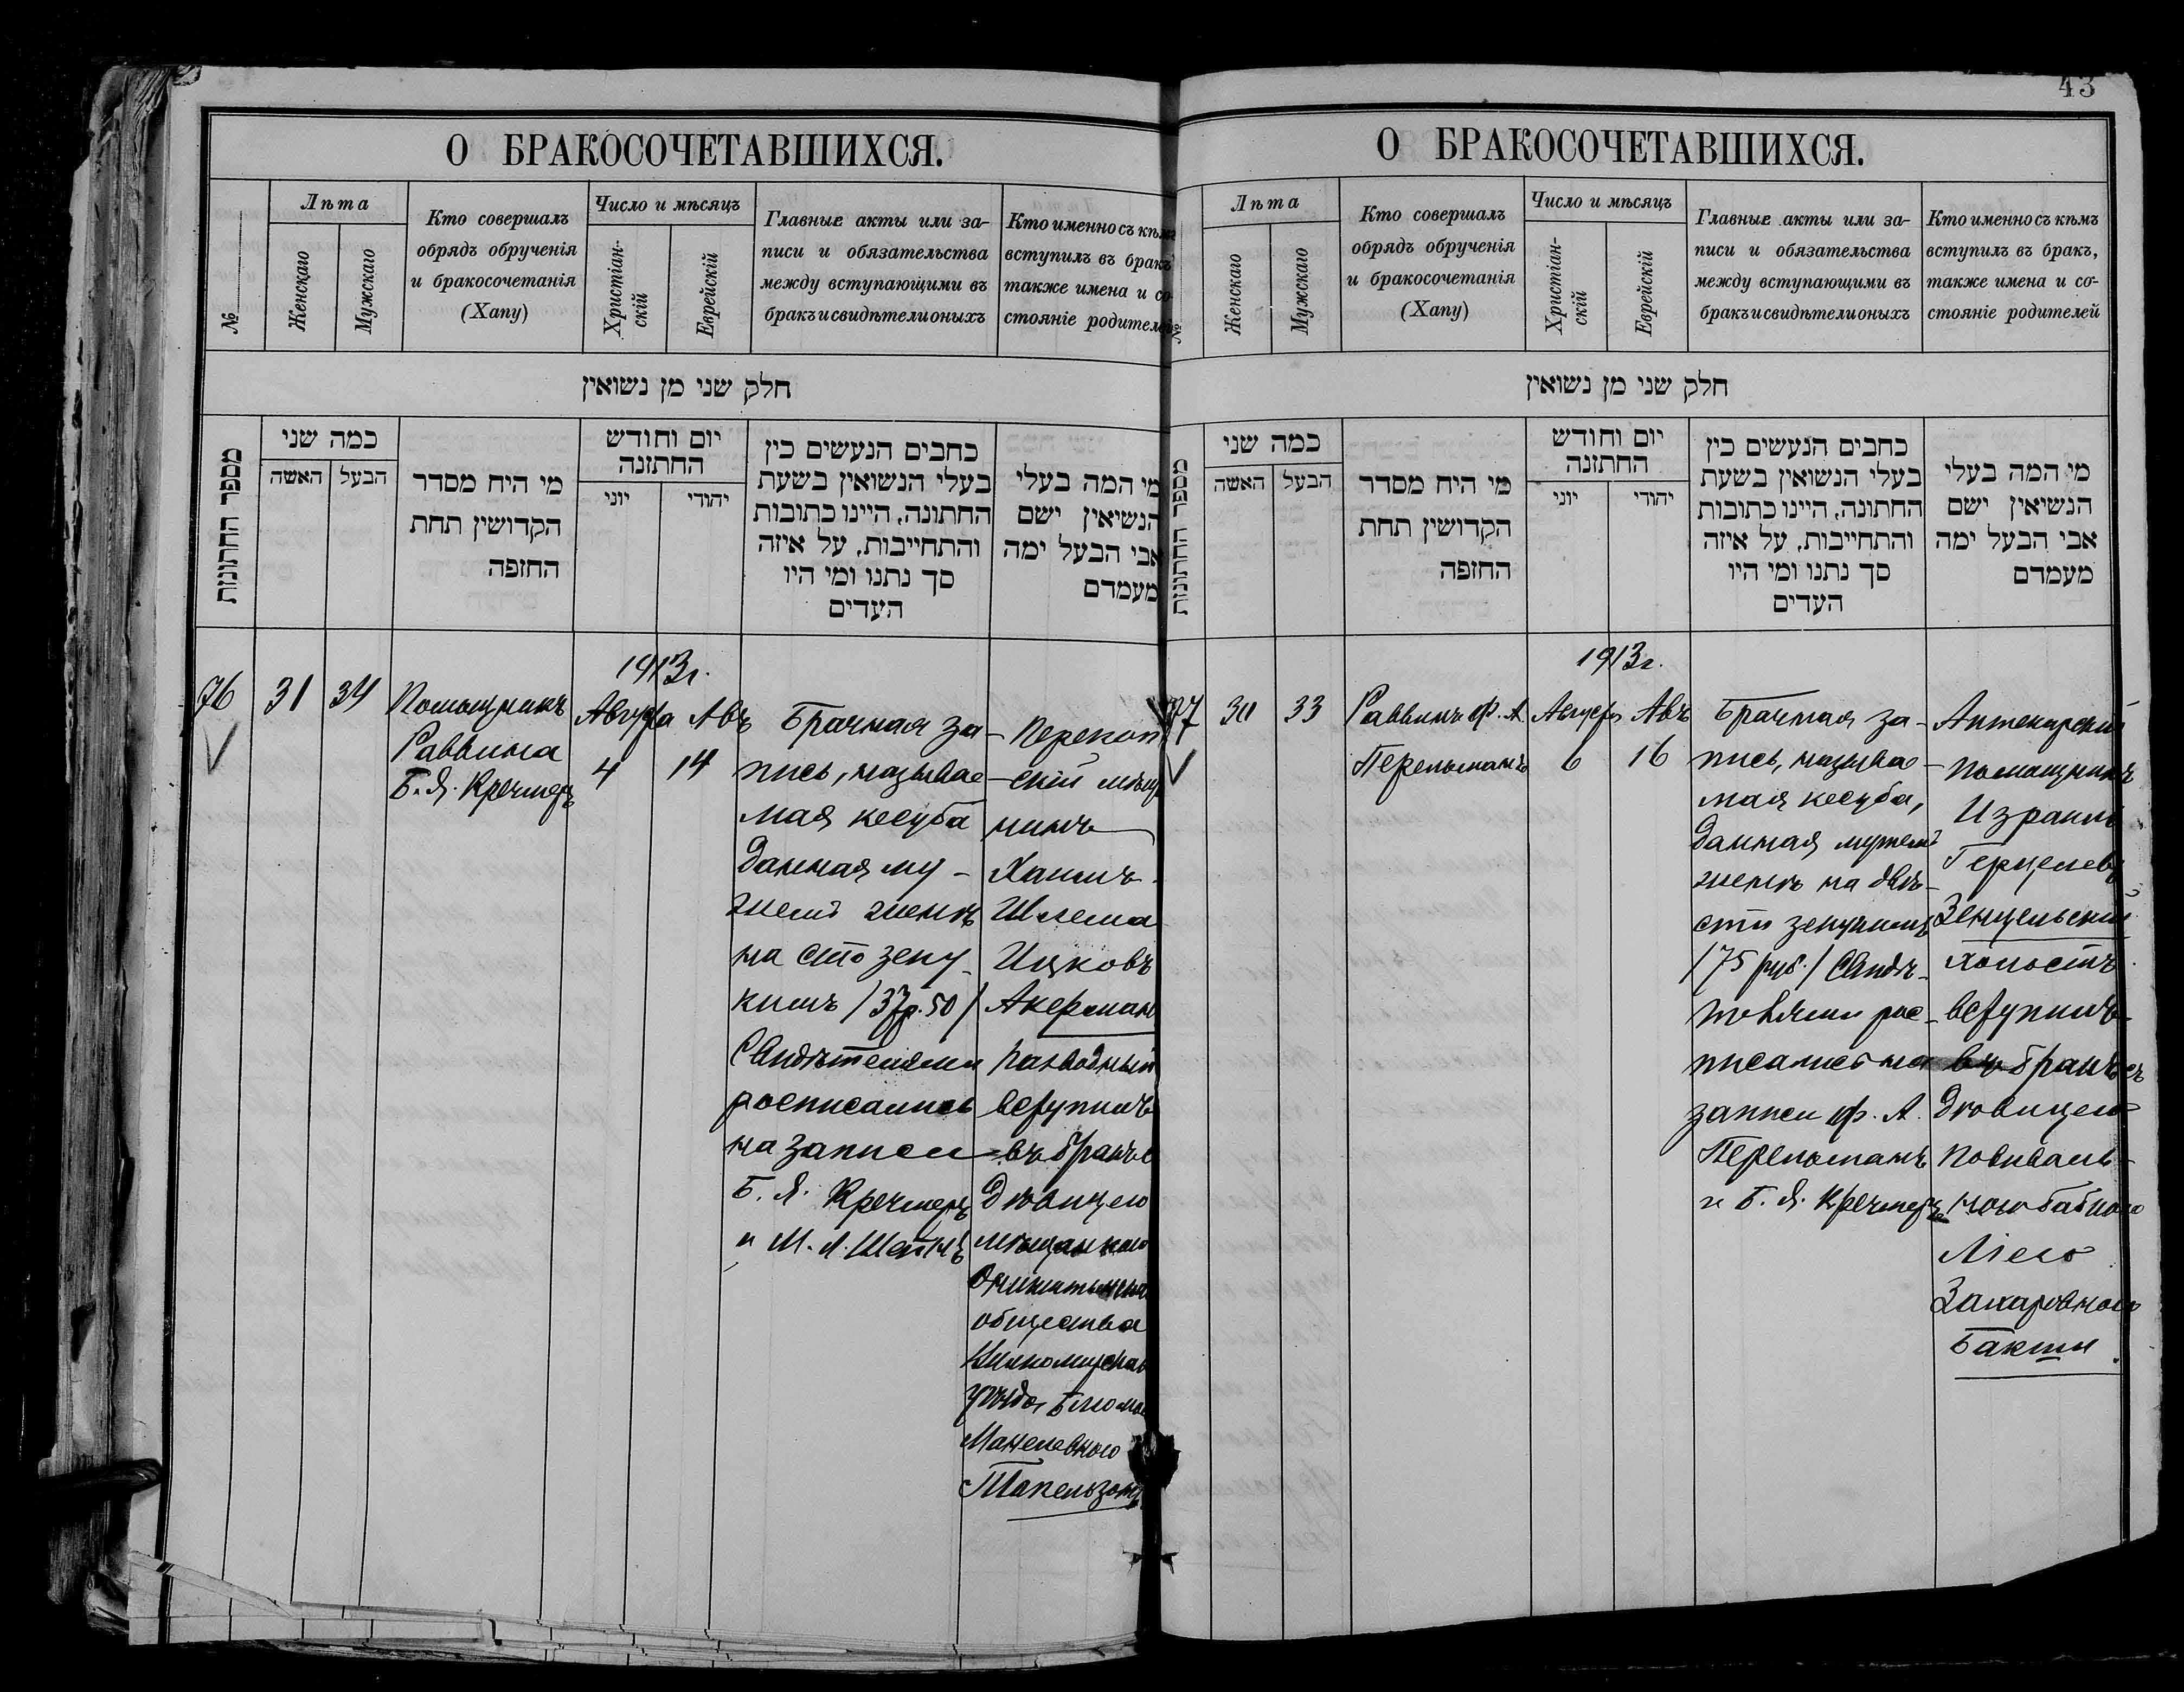 43
О БРАКОСОЧЕТАВШИХСЯ.
№
Лѣта
Женскаго
Мужскаго
Кто совершалъ
обрядъ обрученія
и бракосочетанія
(Хапу)
Число и мѣсяцъ
Христіан-
скій
Еврейскій
Главные акты или за-
писи и обязательства
между вступающими въ
бракъ и свидѣтели оныхъ
Кто именно съ кѣмъ
вступилъ въ бракъ
также имена и со-
стояніе родителей
חלק שני מן נשואין
מספר החתונות
כמה שני
האשה
הבעל
מי היח מסדר
הקדושין תחת
החזפה
יום וחודש
החתזנה
יוני
יהודי
כחבים הנעשים כין
בעלי הנשואין בשעת
החתונה, היינו כתובות
והתחייבות, על איזה
סך נתנו ומי היו
העדים
מי המה בעלי
הנשיאין ישם
אבי הבעל ימה
מעמדם
76
31
34
Помощникъ
Раввина
Б. Я. Кречмеръ
1913г.
Августа
4
Авъ
14
Брачная за-
пись, называе-
мая кесуба
данная му-
жемъ женѣ
на сто зену-
кимъ /37р.50/
Свидѣтелями
росписались
на записи
Б. Я. Кречмеръ
и М. Л. Шейнъ
Перекоп
скій мѣщ
нинъ
Хаимъ-
Шлема
Ицковъ
Акерманъ
разводный
вступилъ
въ бракъ с
дѣвицею
мѣщанкою
общества
Вилкомирскаго
уѣзда Блюмою
Манелевною
О БРАКОСОЧЕТАВШИХСЯ.
№
Лѣта
Женскаго
Мужскаго
Кто совершалъ
обрядъ обрученія
и бракосочетанія
(Хапу)
Число и мѣсяцъ
Христіан-
скій
Еврейскій
Главные акты или за-
писи и обязательства
между вступающими въ
бракъ и свидѣтели оныхъ
Кто именно съ кѣмъ
вступилъ въ бракъ,
также имена и со-
стояніе родителей
חלק שני מן נשואין
מספר החתונות
כמה שני
האשה
הבעל
מי היח מסדר
הקדושין תחת
החזפה
יום וחודש
החתזנה
יוני
יהודי
כחבים הנעשים כין
בעלי הנשואין בשעת
החתונה, היינו כתובות
והתחייבות, על איזה
סך נתנו ומי היו
העדים
מי המה בעלי
הנשיאין ישם
אבי הבעל ימה
מעמדם
77
30
33
Раввинъ Ф. А.
Перельманъ
1913г.
Августа
6
Авъ
16
Брачная за-
пись, называе-
мая кесуба,
данная мужемъ
женѣ на двѣ-
сти зенукимъ
/75 руб./ Свидѣ-
телями рос-
писались на
записи Ф. А.
Перельманъ
и Б. Я. Кречмеръ
Аптекарскій
помощникъ
Израиль
Герцелевъ
Зенцельскій
холостъ
вступилъ
въ бракъ съ
дѣвицею
повиваль-
ною бабкою
Ліею
Захаровною
Бакшн